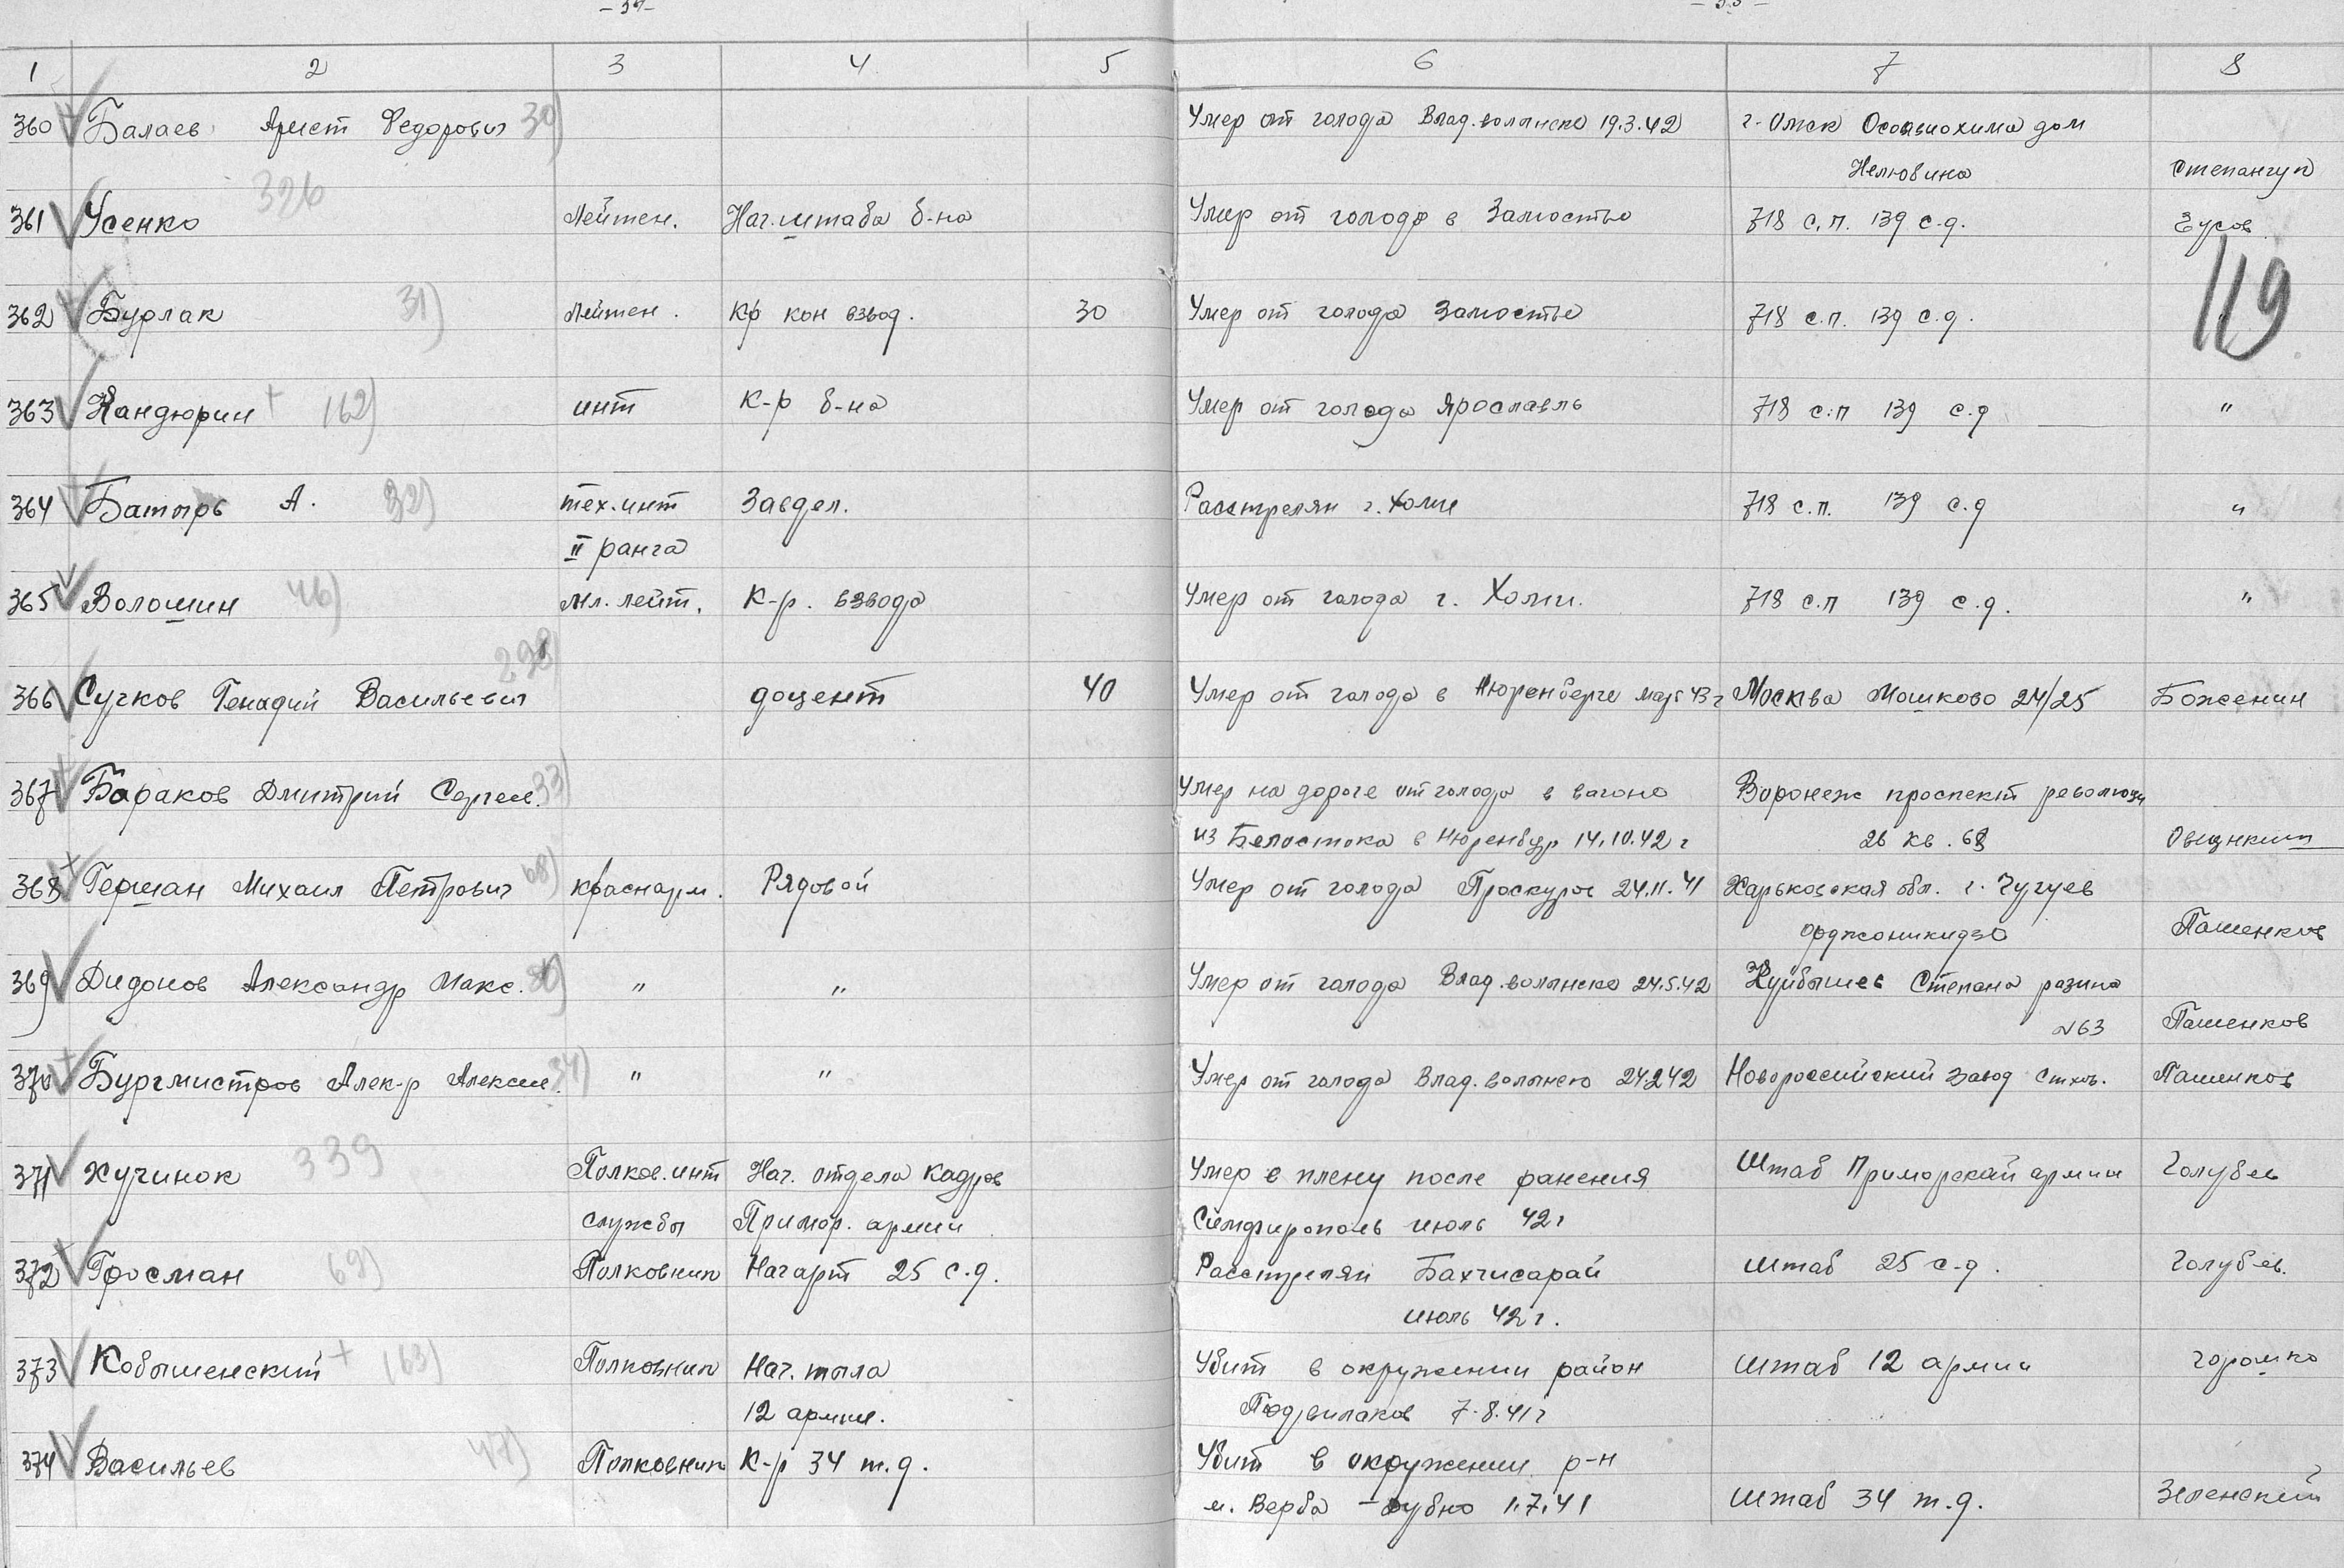 1 2 3 4 5 6 7 8
360 Балаев Арист Федорович 30) Умер от голода Влад. волынско 19.3.42 г. Омск Осоавиохима дом
Нелювина Степангуп
326
361 Усенко Лейтен. Нач. штаба б-на Умер от голода в Замостье 718 с.п. 139 с.д. Гусов
119
362 Бурлак 31) Лейтен. Кр кон взвод. 30 Умер от голода Замостье 718 с.п. 139 с.д.
363 Кандюрин + 162) инт К-р б-на Умер от голода Ярославль 718 с.п 139 с.д "
364 Батырь А. 32) тех.инт Завдел. Расстрелян г. Холм 718 с.п. 139 с.д "
II ранга
365 Волошин 46) мл. лейт. К-р. взвода Умер от голода г. Холм. 718 с.п 139 с.д. "
298
366 Сучков Генадий Васильевич доцент 40 Умер от голода в Нюренберге март 43 г Москва Мошково 24/25 Боженин
367 Бараков Дмитрий Сергее. 33) Умер на дороге от голода в вагоне Воронеж проспект революци
из Белостока в Нюренбург 14.10.42 г 26 кв. 68
368 Гершан Михаил Петрович 68) краснарм. Рядовой Умер от голода Проскуров 24.11.41 Харьковская обл. г. Чугуев
орджоникидзе Пашенков
369 Дидонов Александр Макс. 80) " " Умер от голода Влад. волынско 24.5.42 Куйбышев Степана разина
№63 Пашенков
370 Бургмистров Алек-р Алексее. 34) " " Умер от голода Влад. волынско 24242 Новороссийский завод Пашенков
371 Кучинок 339 Полков. инт Нач. отдела кадров Умер в плену после ранения Штаб Приморской армии Голубев
службы Примор. армии Симфирополь июль 42 г
372 Гросман 69) Полковник Начарт 25 с.д. Расстрелян Бахчисарай штаб 25 с.д. Голубев.
июль 42 г.
373 Кобышенский + 163) Полковник Нач. тыла Убит в окружении район штаб 12 армии Горошко
12 армии. 7.8.41 г
374 Васильев 47) Полковник К-р 34 т.д. Убит в окружении р-н
м. Верба – Дубно 1.7.41 штаб 34 т.д. Зеленский